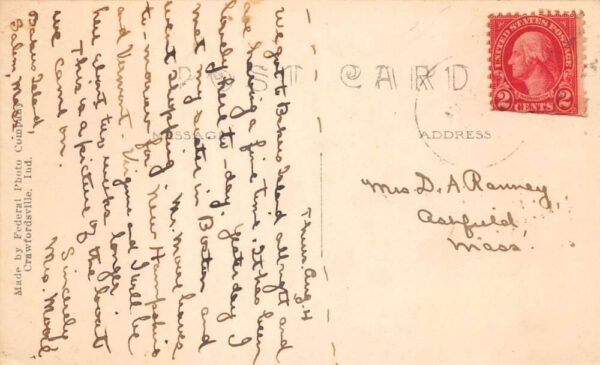 POST CARD
MESSAGE
ADDRESS
UNITED STATES POSTAGE
2 CENTS 2
Mrs D. A. Ranney,
Ashfield,
Mass.
Thurs. Aug. 4
We got to Bakers Island all right and
are having a fine time. It has been
lovely here to-day. Yesterday I
met my sister in Boston and
went shopping. Mr. Moore leaves
to-morrow for New Hampshire
and Vermont. Virginia and I will be
here about two weeks longer.
This is a picture of the boat
we came on.
Sincerely
Mrs. Moore
Bakers Island,
Salem, Mass.
Made by Federal Photo Company
Crawfordsville, Ind.